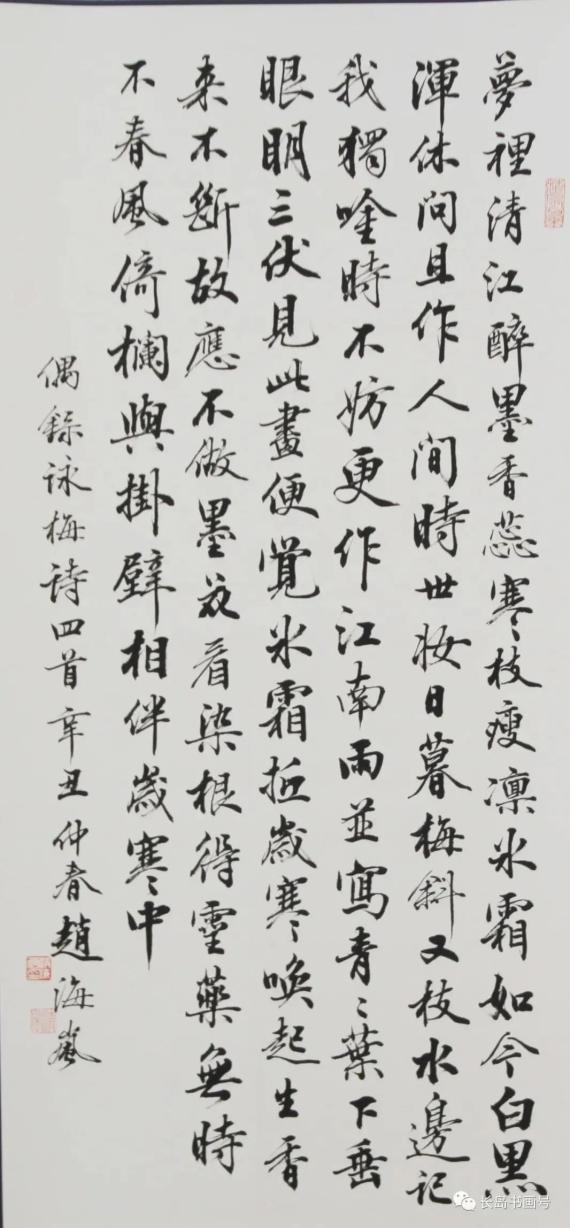 夢裡清江醉墨香蕊寒枝瘦凛氷霜如今白黑
渾休问且作人间時世妆日暮梅斜又枝水邊记
我獨唫時不妨更作江南雨並寫青〻葉下垂
眼明三伏見此畫便覺氷霜抵歲寒喚起生香
来不斷故應不做墨花看染根得霊藥無時
不春風倚欄與掛壁相伴歲寒中
偶録咏梅诗四首辛丑仲春趙海嵐
长岛书画号